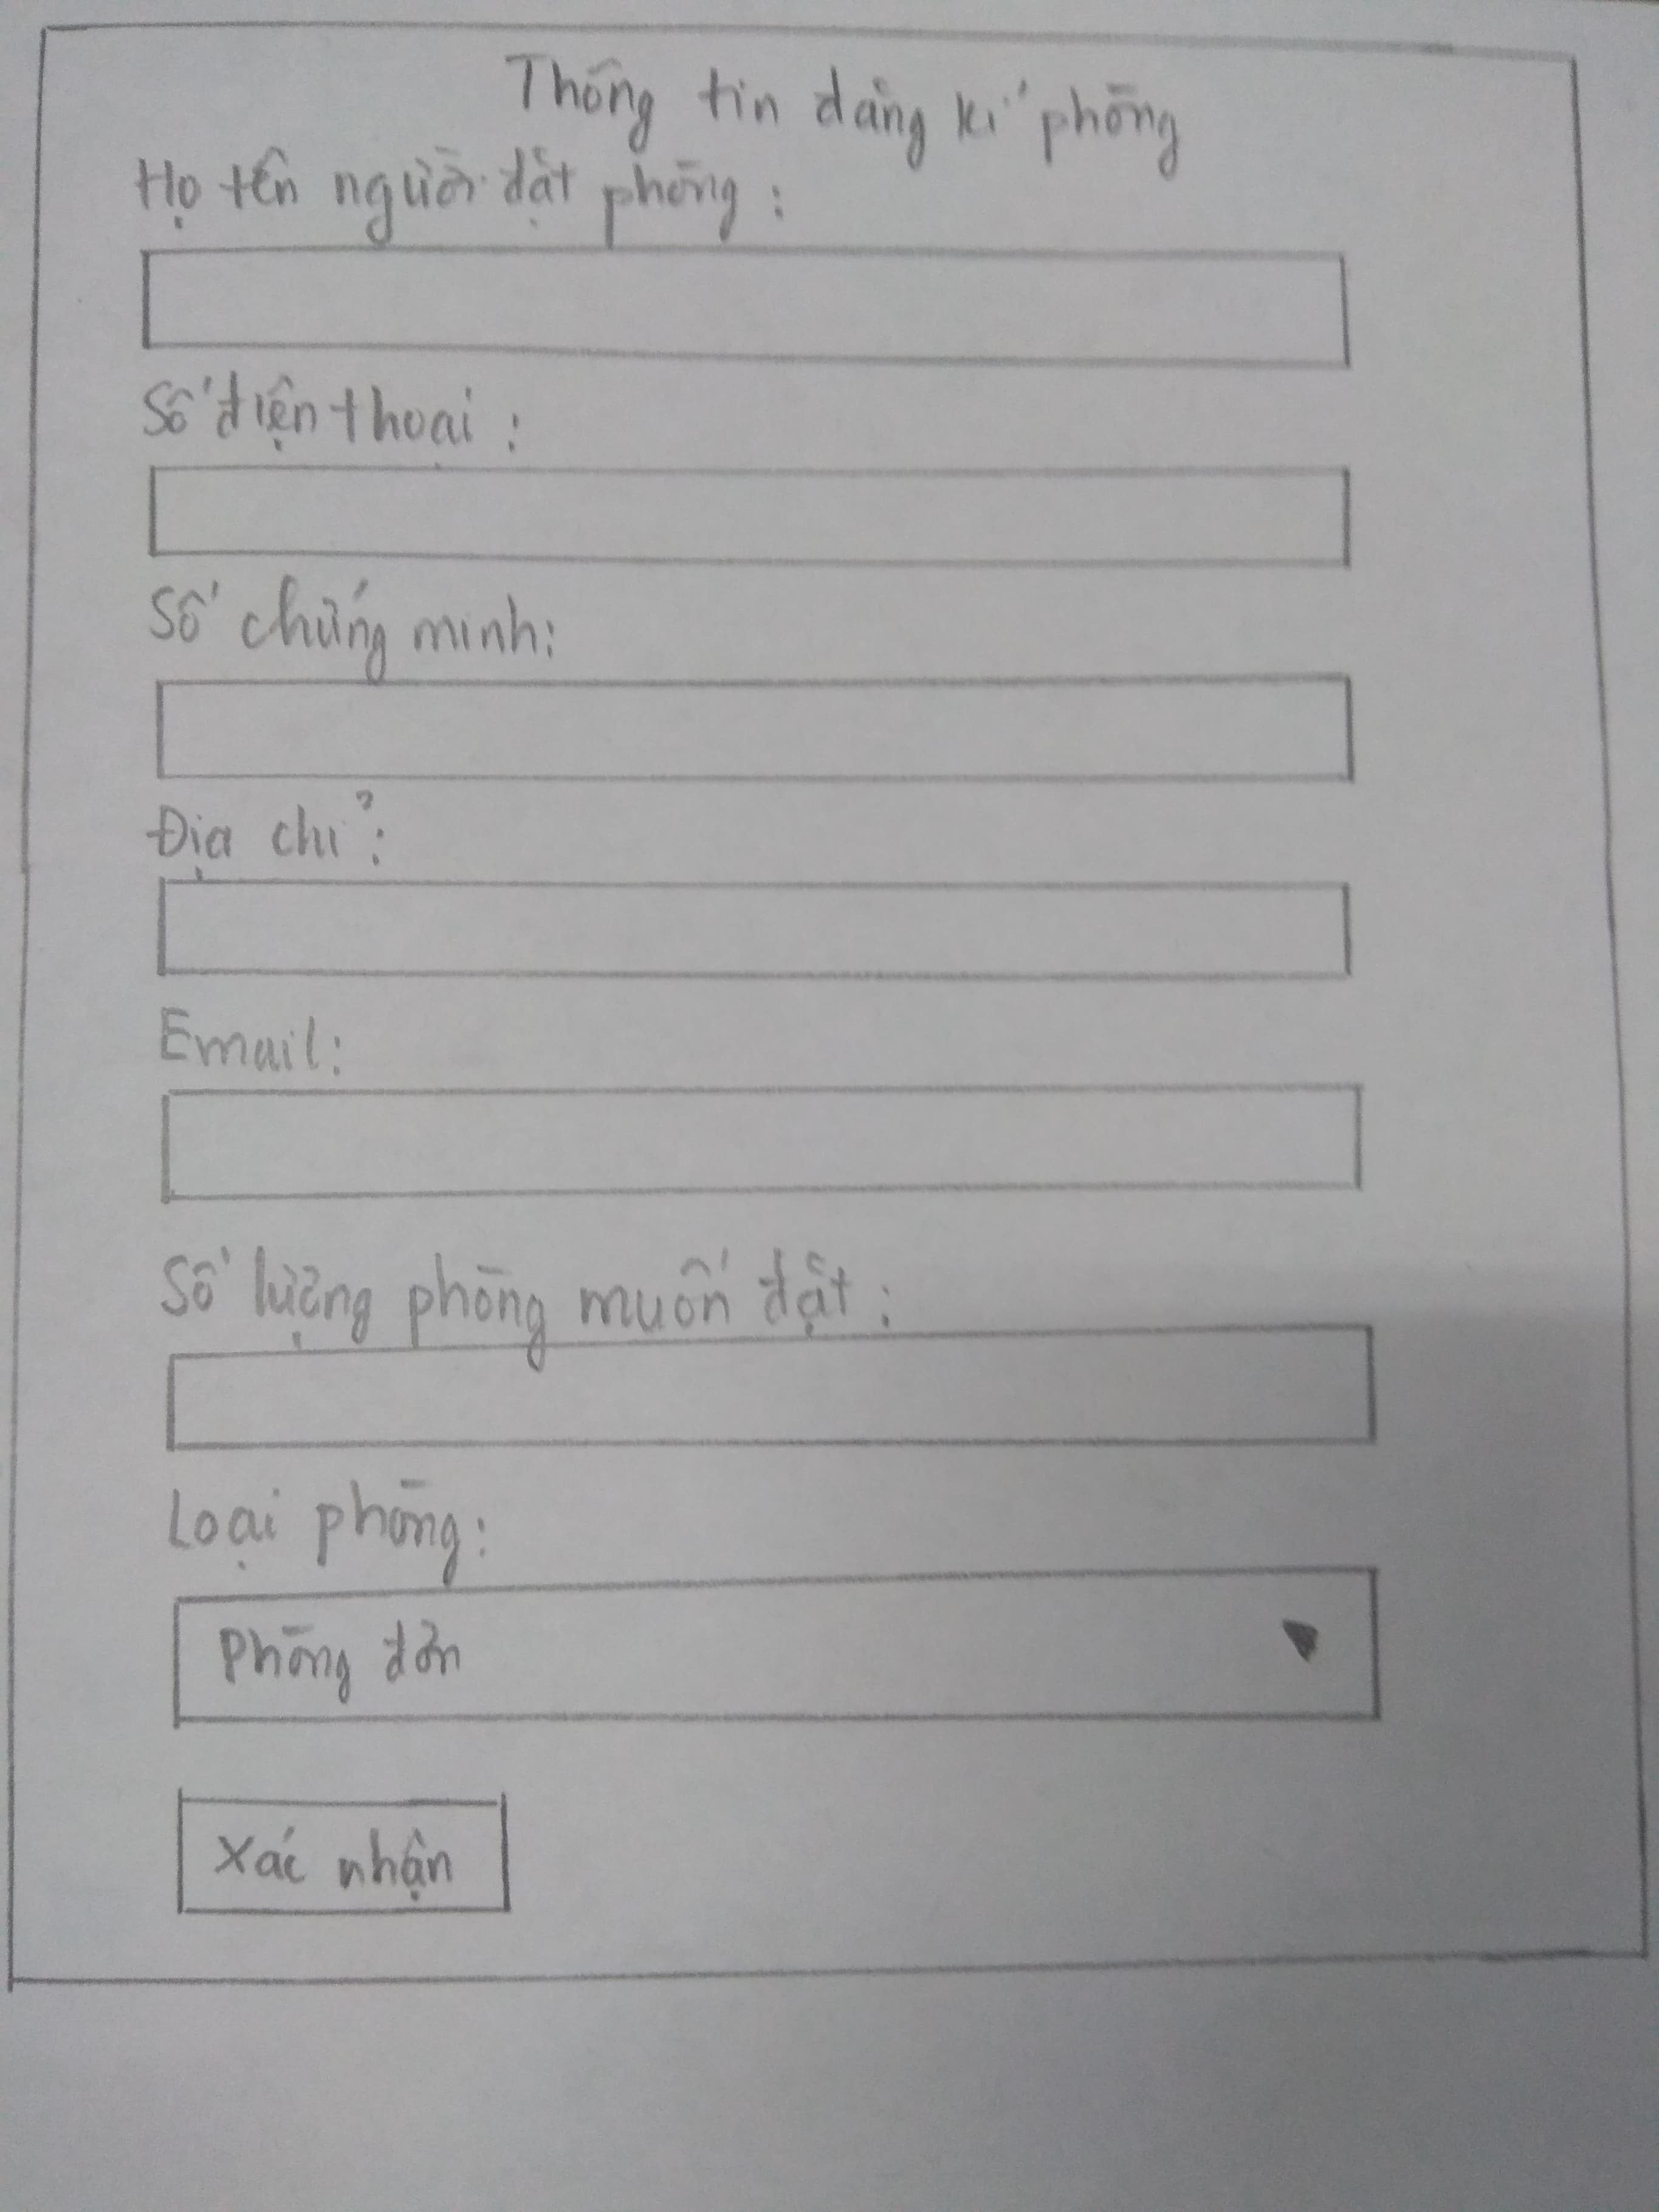 Thông tin đăng kí phòng
Họ tên người đặt phòng:
Số điện thoại:
Số chứng minh:
Địa chỉ:
Email:
Số lượng phòng muốn đặt:
Loại phòng:
Phòng đơn
Xác nhận